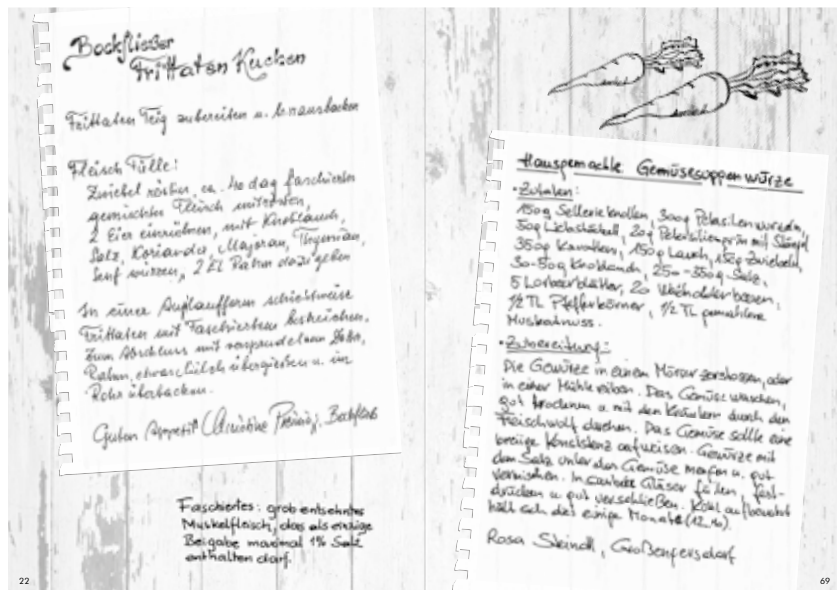 Bockfließer
Frittaten Kuchen
Frittaten Teig zubereiten u. ausbacken
Fleisch Fülle:
Zwiebel rösten, ca. 40 dag faschiertes
gemischtes Fleisch mitrösten,
2 Eier einrühren, mit Knoblauch,
Salz, Koriander, Majoran, Thymian,
Senf würzen, 2 EL Rahm dazugeben
In einer Auflaufform schichtweise
Frittaten mit Faschiertem bestreichen.
Zum Abschluss mit
Rahm, etwas Milch übergießen u. im
Rohr überbacken.
Guten Appetit Christine Bockfließ
Faschiertes: grob entsehntes
Muskelfleisch, das als einzige
Beigabe maximal 1% Salz
enthalten darf.
22
Hausgemachte Gemüsesuppenwürze
• Zutaten:
150g Sellerieknollen, 300g Petersilienwurzeln,
50g Liebstöckel, 20g Petersiliengrün mit Stängel
350g Karotten, 150g Lauch, 150g Zwiebeln,
30-50g Knoblauch, 250-350g Salz,
5 Lorbeerblätter, 20 Wacholderbeeren,
1/2 TL Pfefferkörner, 1/2 TL gemahlene
Muskatnuss.
• Zubereitung:
Die Gewürze in einem Mörser zerstossen, oder
in einer Mühle reiben. Das Gemüse waschen,
gut trocknen u. mit den Kräutern durch den
Fleischwolf drehen. Das Gemüse sollte eine
breiige Konsistenz aufweisen. Gewürze mit
dem Salz unter das Gemüse mengen u. gut
vermischen. In saubere Gläser füllen, fest-
drücken u. gut verschließen. Kühl aufbewahrt
hält sich dies einige Monate (12 Mo).
Rosa Steindl, Großengersdorf
69